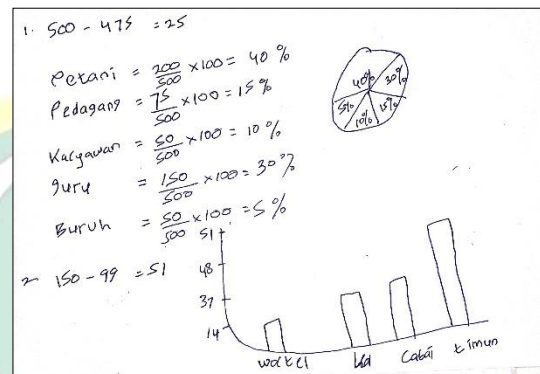 1. 500 - 475 = 25
Petani = 200/500 x 100 = 40 %
Pedagang = 75/500 x 100 = 15 %
Karyawan = 50/500 x 100 = 10 %
guru = 150/500 x 100 = 30 %
Buruh = 50/500 x 100 = 5 %
40% 30%
5% 10% 15%
2 150 - 99 = 51
51
48
37
14
wortel Cabai timun